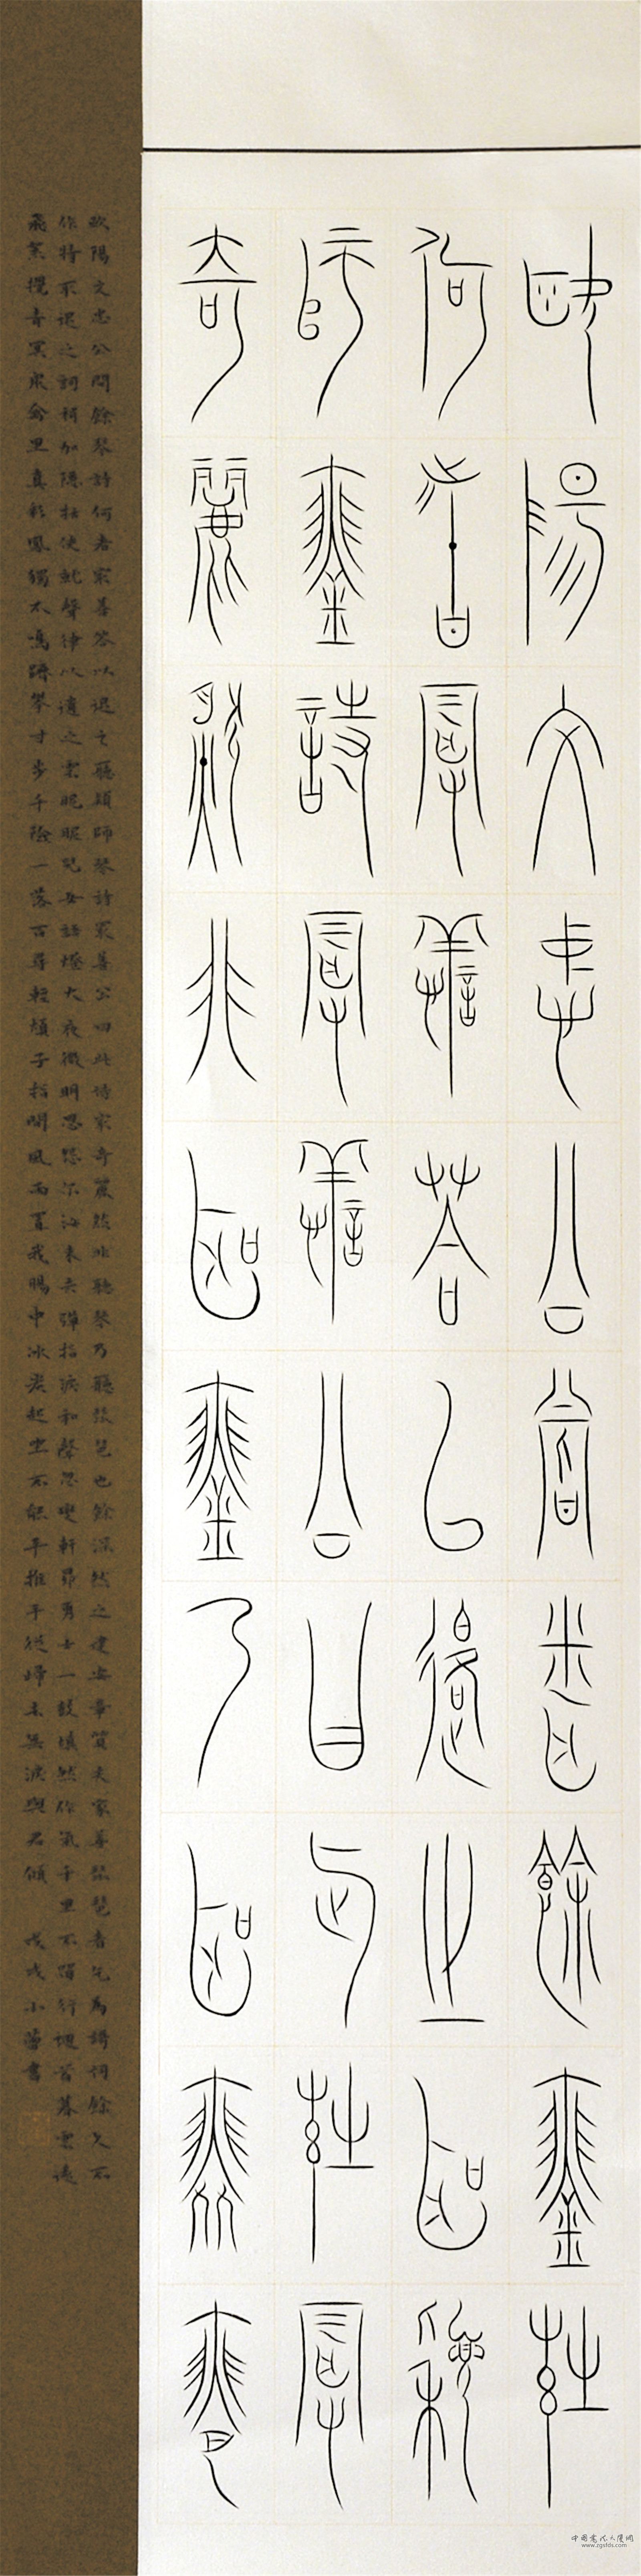 歐陽文忠公嘗問餘琴詩
何者最善答以退之聽穎
師琴詩最善公曰此詩最
奇麗然非聽琴乃聽琵琶
歐陽文忠公問餘琴詩何者最善答以退之聽穎師琴詩最善公曰此詩最奇麗然非聽琴乃聽琵琶也餘深然之建安章質夫家善琵琶者乞為歌詞餘久不
作特取退之詞稍加隱括使就聲律以遺之雲昵昵兒女語燈火夜微明恩怨爾汝來去彈指淚和聲忽變軒昂勇士一鼓填然作氣千里不留行回首暮雲遠
飛絮攪青冥眾禽里真彩鳳獨不鳴躋攀寸步千險一落百尋輕煩子指間風雨置我腸中冰炭起坐不能平推手從歸去無淚與君傾 戊戌小書
www.zgsfds.com